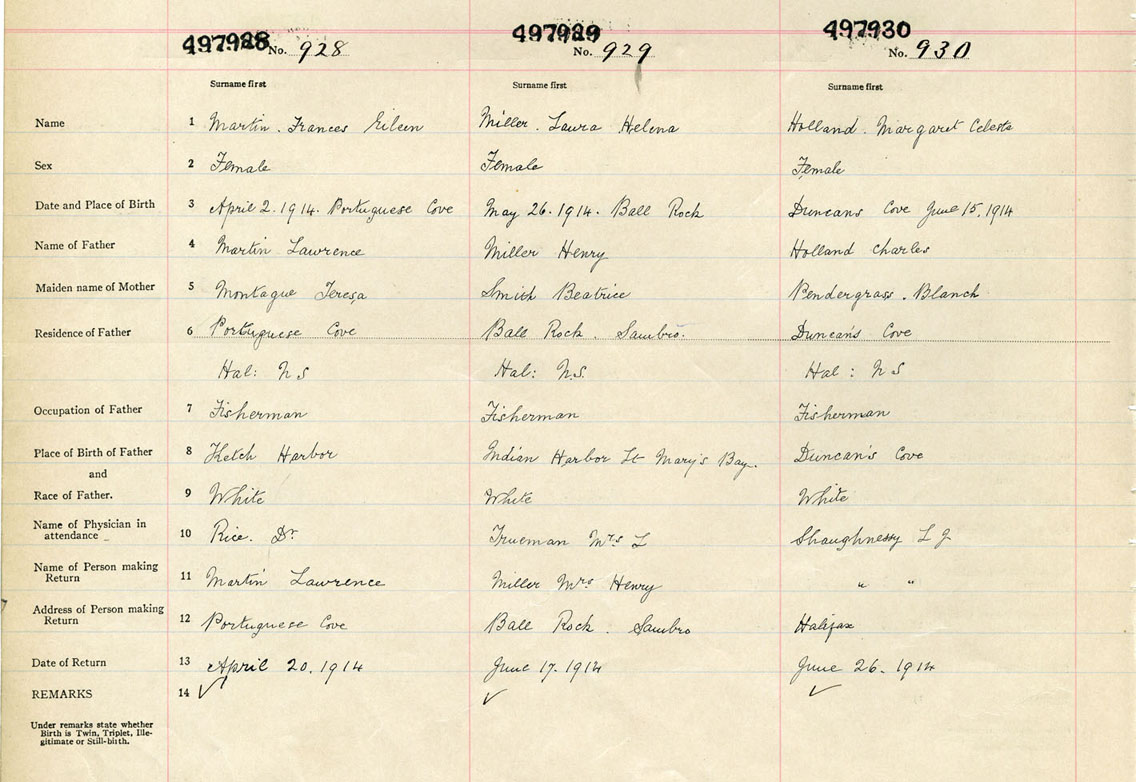 497928 No. 928 497929 No. 929 497930 No. 930
Surname first Surname first Surname first
Name 1 Martin. Frances Eileen Miller. Laura Helena Holland. Margaret Celeste
Sex 2 Female Female Female
Date and Place of Birth 3 April 2. 1914. Portuguese Cove May 26. 1914. Ball Rock Duncans Cove June 15. 1914
Name of Father 4 Martin Lawrence Miller Henry Holland Charles
Maiden name of Mother 5 Montague Teresa Smith Beatrice Pendergrass. Blanch
Residence of Father 6 Portuguese Cove Ball Rock. Sambro. Duncan's Cove
Hal: N S Hal: N.S. Hal: N S
Occupation of Father 7 Fisherman Fisherman Fisherman
Place of Birth of Father 8 Ketch Harbor Indian Harbor St Mary's Bay. Duncan's Cove
and
Race of Father. 9 White White White
Name of Physician in
attendance 10 Rice. Dr. Trueman Mrs L Shaughnessy L J
Name of Person making
Return 11 Martin Lawrence Miller Mrs Henry " "
Address of Person making
Return 12 Portuguese Cove Ball Rock. Sambro Halifax
Date of Return 13 April 20. 1914 June 17. 1914 June 26. 1914
REMARKS 14 ✓ ✓ ✓
Under remarks state whether
Birth is Twin, Triplet, Ille-
gitimate or Still-birth.